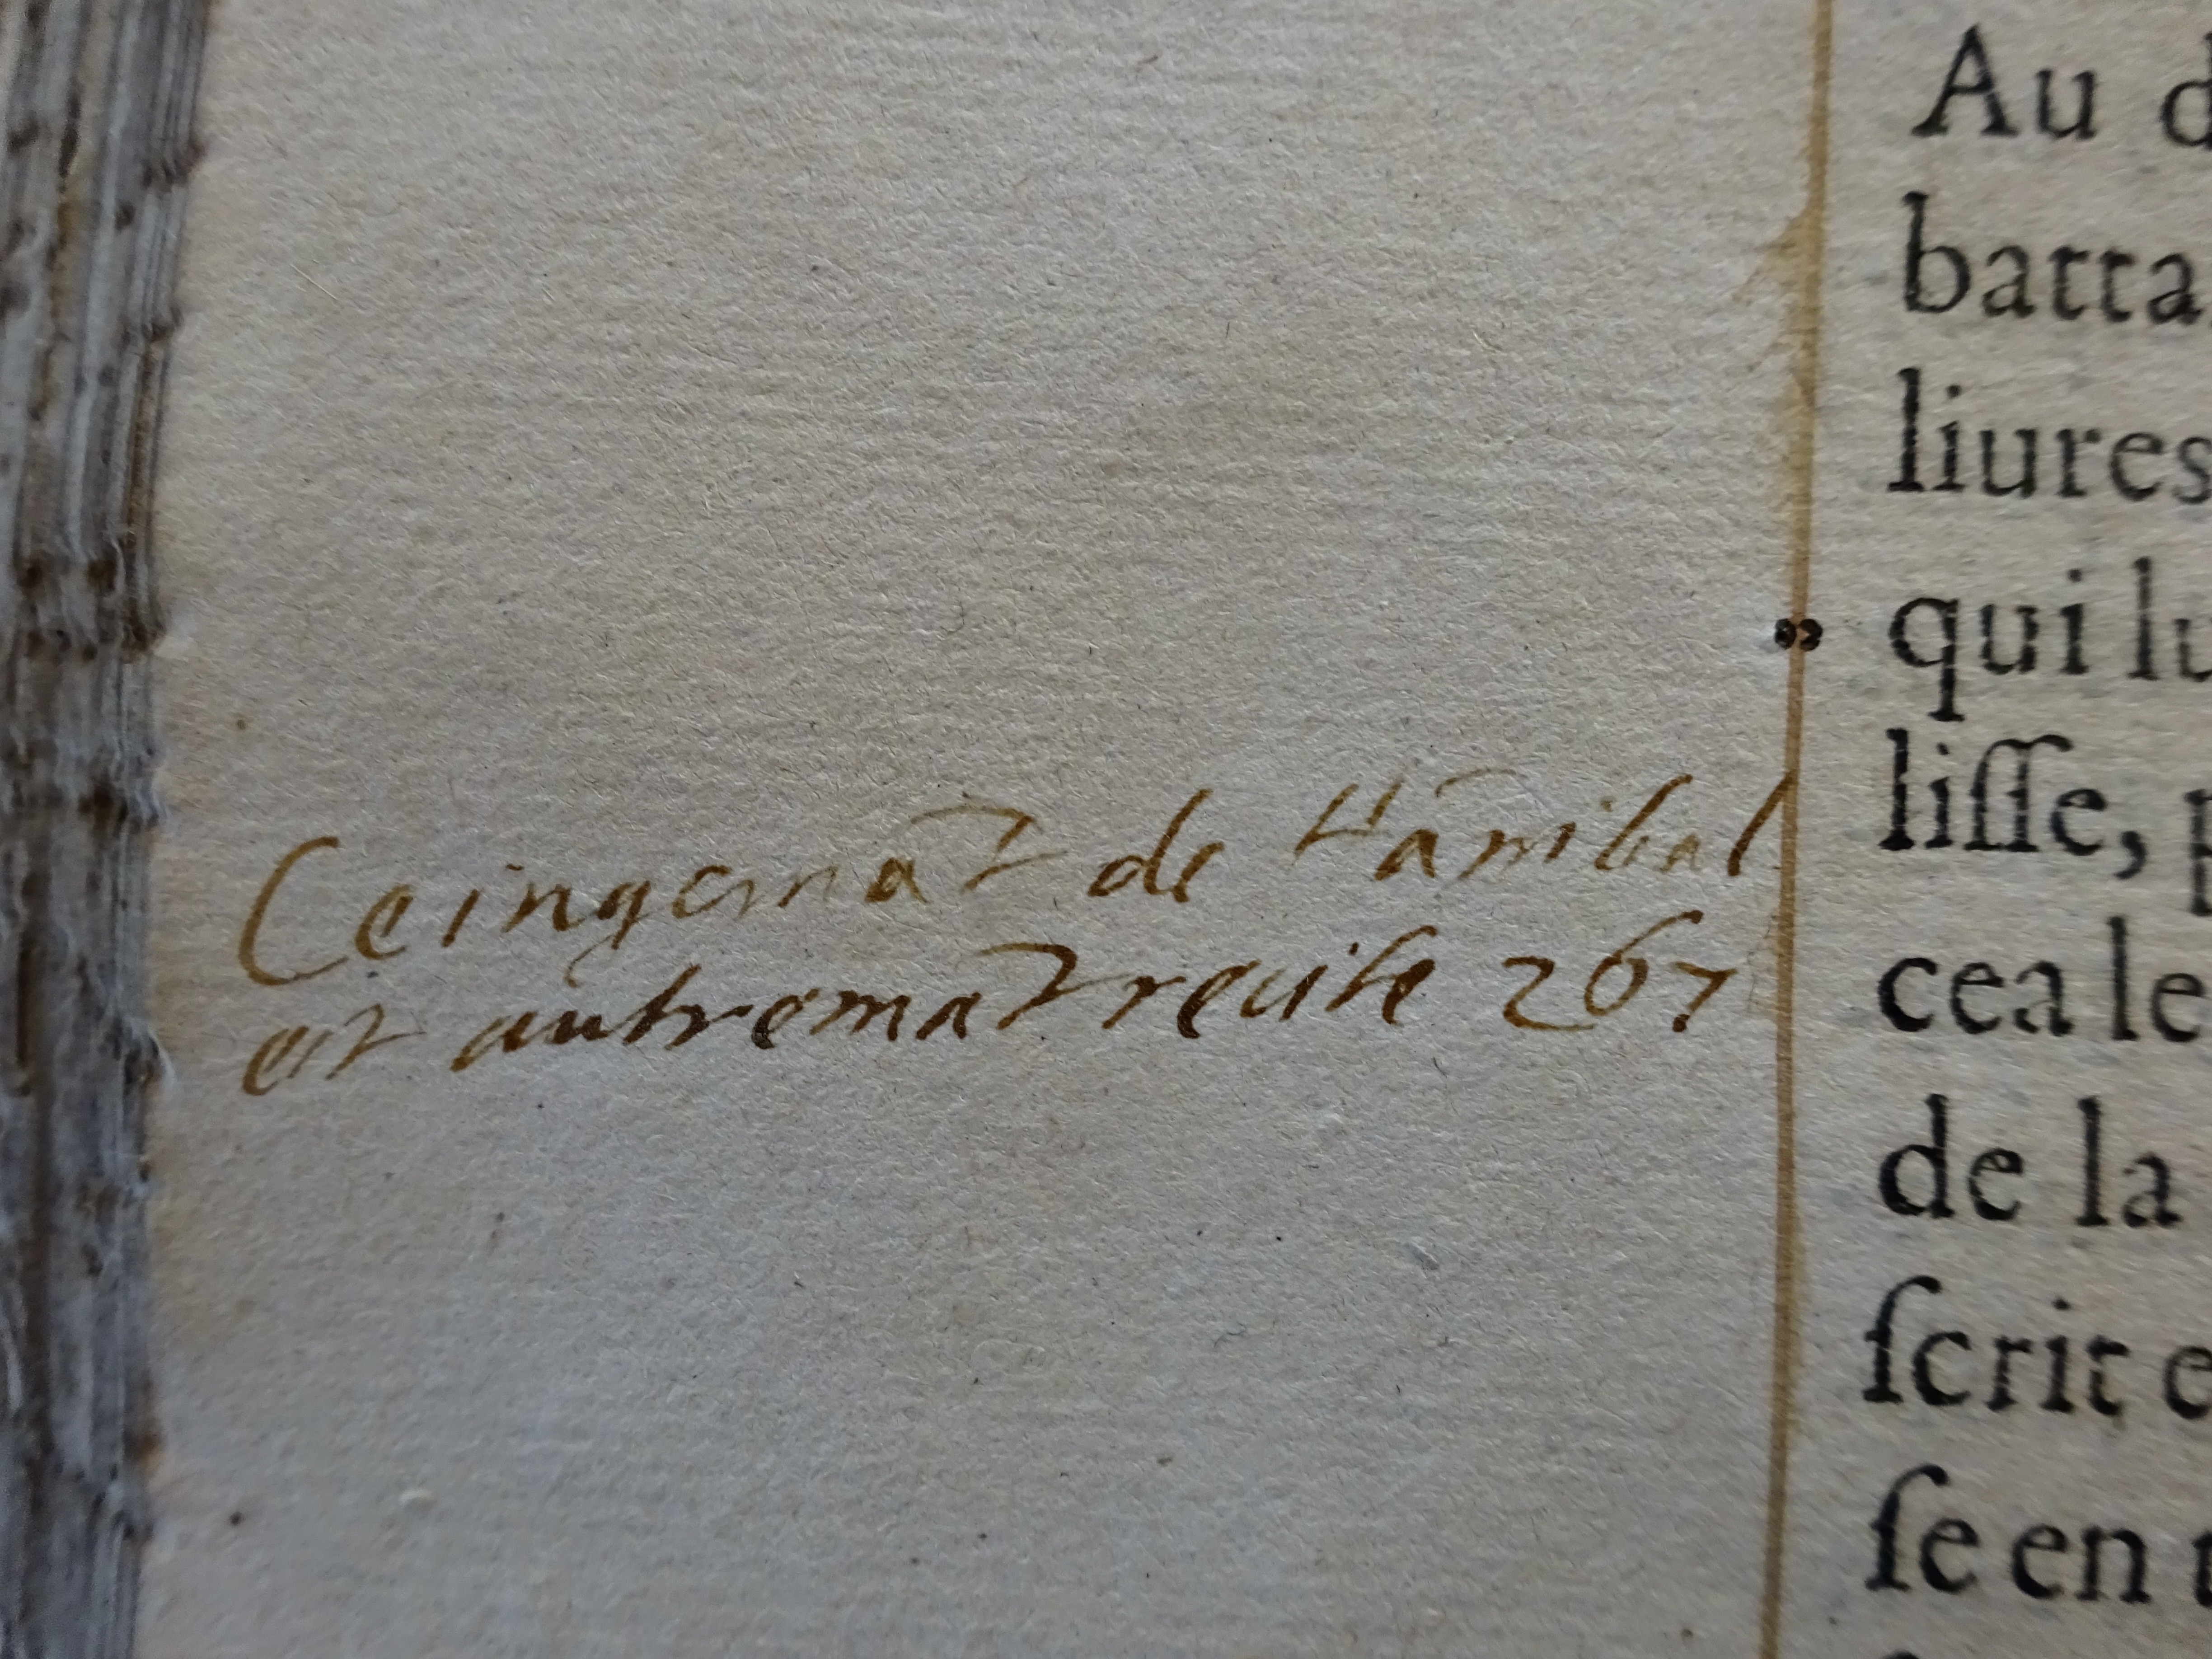 Ce iugemāt de Hānibal
est autremāt recite 267
Au d
batta
liures
qui lu
liſſe, p
cea le
de la
ſcrit e
ſe en t